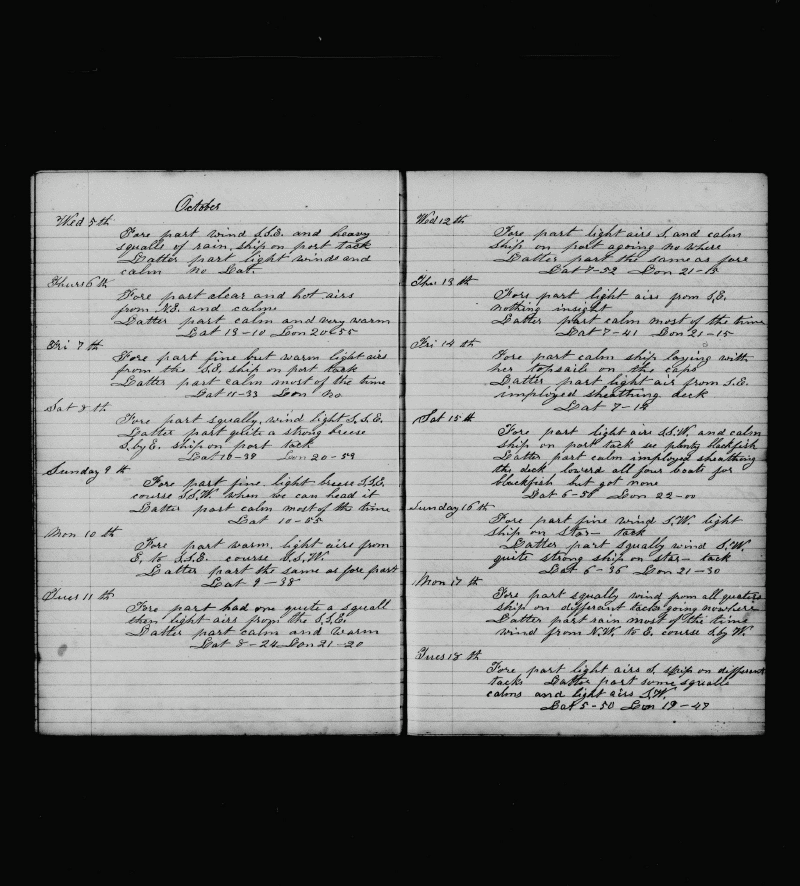 October
Wed 5th
Fore part wind S.S.E. and heavy
squalls of rain, ship on port tack
Latter part light winds and
calm no Lat.
Thurs 6th
Fore part clear and hot airs
from N.E. and calms
Latter part calm and very warm
Lat 13-10 Lon 20-55
Fri 7th
Fore part fine but warm light airs
from the S.E. ship on port tack
Latter part calm most of the time
Lat 11-33 Lon no
Sat 8th
Fore part squally, wind light S.S.E.
Latter part quite a strong breese
S.by E. ship on port tack
Lat 10-38 Lon 20-59
Sunday 9th
Fore part fine light breese S.S.E.
course S.S.W. when we can head it
Latter part calm most of the time
Lat 10-55
Mon 10th
Fore part warm, light airs from
E. to S.S.E. course S.S.W.
Latter part the same as fore part
Lat 9-38
Tues 11th
Fore part had one quite a squall
then light airs from the S.S.E.
Latter part calm and warm
Lat 8-24 Lon 21-20
Wed 12th
Fore part light airs S. and calm
ship on port agoing no where
Latter part the same as fore
Lat 7-52 Lon 21-18
Thu 13th
Fore part light airs from S.E.
nothing insight
Latter part calm most of the time
Lat 7-41 Lon 21-15
Fri 14th
Fore part calm ship laying with
her topsails on the caps
Latter part light air from S.E.
imployed sheathing deck
Lat 7-18
Sat 15th
Fore part light airs S.S.W. and calm
ship on port tack see plenty blackfish
Latter part calm imployed sheathing
the deck lowerd all four boats for
blackfish but got none
Lat 6-58 Lon 22-00
Sunday 16th
Fore part fine wind S.W. light
ship on star- tack
Latter part squally wind S.W.
quite strong ship on star- tack
Lat 6-36 Lon 21-30
Mon 17th
Fore part squally wind from all quaters
ship on differant tacks going nowhere
Latter part rain most of the time
wind from N.W. to E. course S.by W.
Tues 18th
Fore part light airs S. ship on differant
tacks Latter part some squalls
calms and light airs S.W.
Lat 5-50 Lon 19-47